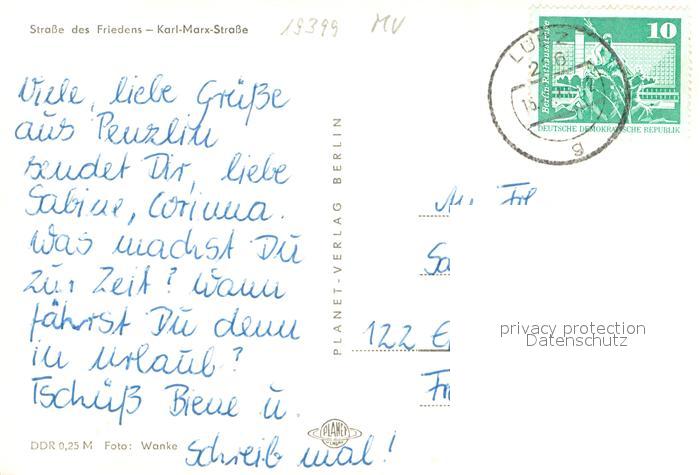 Straße des Friedens – Karl-Marx-Straße
19399 MV
10
Berlin-Rathausstraße
DEUTSCHE DEMOKRATISCHE REPUBLIK
Viele, liebe Grüße
aus Penzlin
sendet Dir, liebe
Sabine, Corinna.
Was machst Du
zur Zeit? Wann
fährst Du denn
in Urlaub?
Tschüß Biene u.
Schreib mal!
PLANET-VERLAG BERLIN
122 E
privacy protection
Datenschutz
PLANET
DDR 0,25 M Foto: Wanke